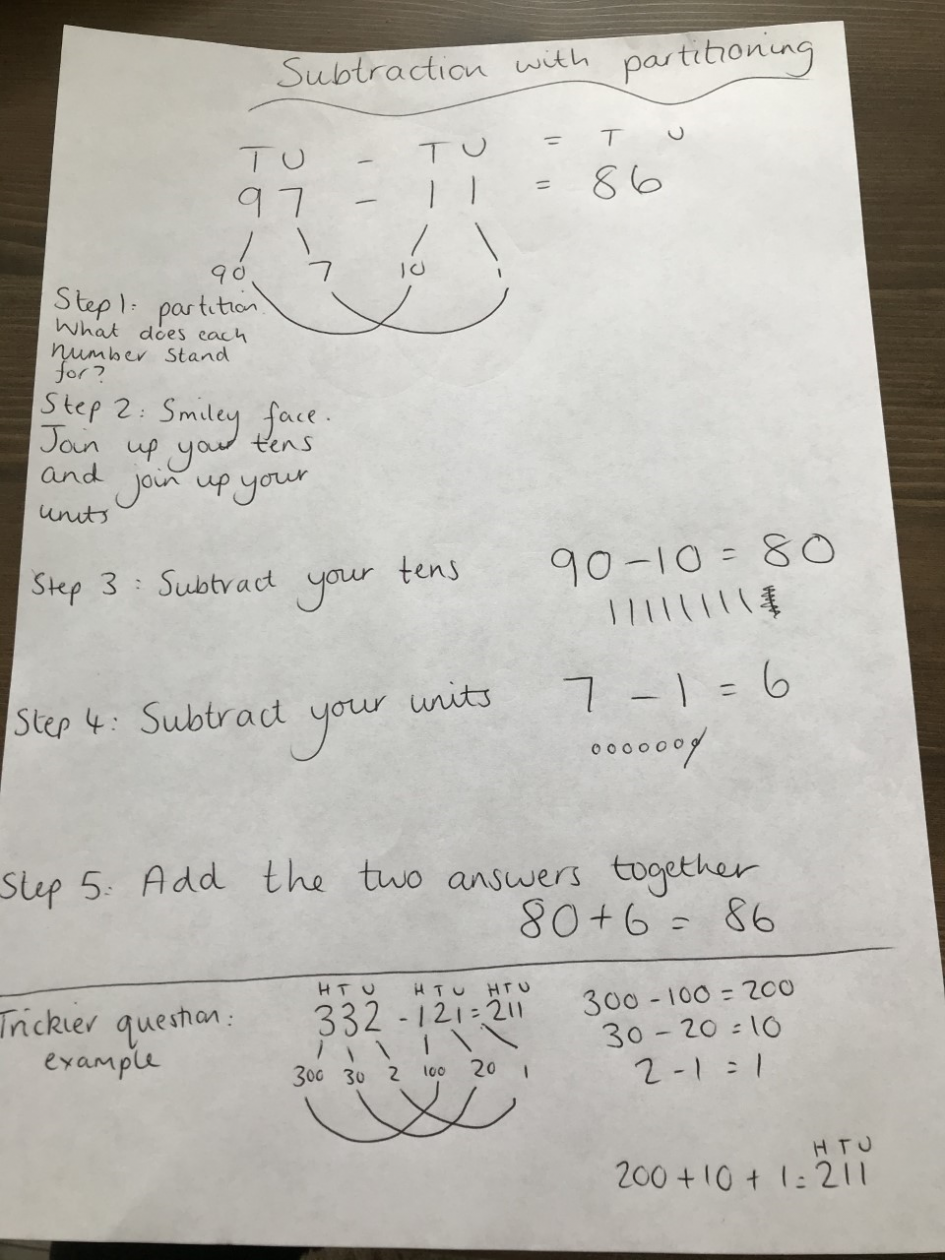 Subtraction with partitioning
T U - T U = T U
97 - 11 = 86
90 7 10 1
Step 1: partition.
What does each
number stand
for?
Step 2: Smiley face.
Join up your tens
and join up your
units
Step 3: Subtract your tens 90 - 10 = 80
Step 4: Subtract your units 7 - 1 = 6
Step 5: Add the two answers together
80 + 6 = 86
H T U H T U H T U
Trickier question: 332 - 121 = 211 300 - 100 = 200
example 30 - 20 = 10
300 30 2 100 20 1 2 - 1 = 1
H T U
200 + 10 + 1 = 211